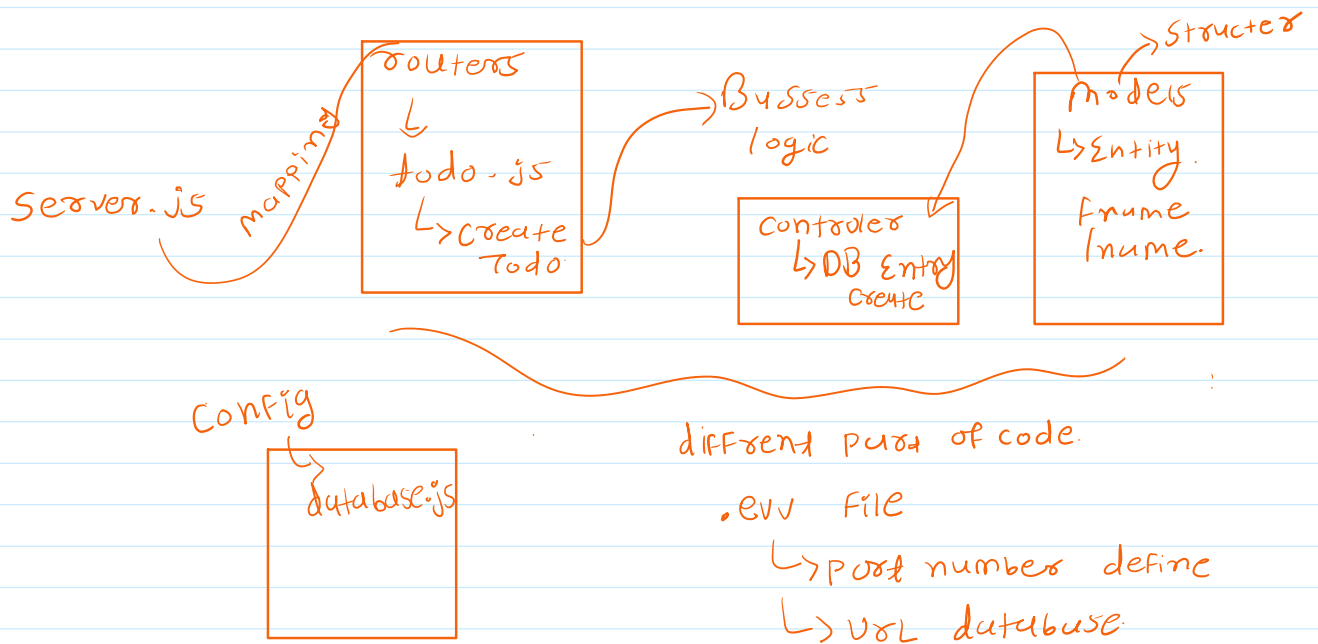 routers
todo.js
create
Todo
mapping
Server.js
Bussess
logic
controler
DB Entry
create
Structer
models
Entity.
Fname
lname.
Config
database.js
diffrent part of code.
.evv File
port number define
UrL database.